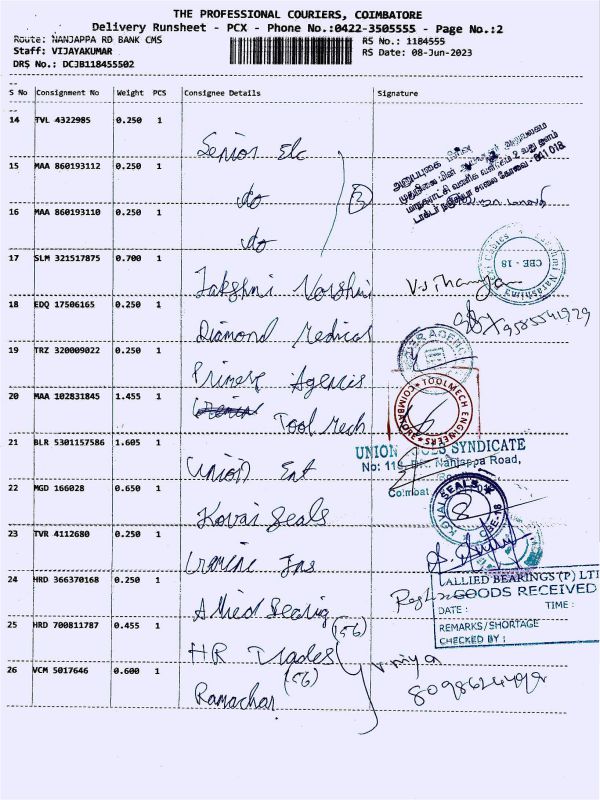 THE PROFESSIONAL COURIERS, COIMBATORE
Delivery Runsheet - PCX - Phone No.:0422-3505555 - Page No.:2
Route: NANJAPPA RD BANK CMS
RS No.: 1184555
Staff: VIJAYAKUMAR
RS Date: 08-Jun-2023
DRS No.: DCJB118455502
S No Consignment No Weight PCS Consignee Details Signature
14 TVL 4322985 0.250 1
Senior Elc
15 MAA 860193112 0.250 1
do
3
16 MAA 860193110 0.250 1
do
17 SLM 321517875 0.700 1
CBE - 18
Lakshmi Narshim
18 EDQ 17506165 0.250 1
9585541929
Diamond Medical
19 TRZ 320009022 0.250 1
Primere Agencis
20 MAA 102831845 1.455 1
TOOLMECH ENGINEERS
COIMBATORE
Tool Mech
21 BLR 5301157586 1.605 1
UNION SYNDICATE
Nanjappa Road,
Union Ent
22 MGD 166028 0.650 1
KOVAI SEALS
CBE-18
Kovai Seals
23 TVR 4112680 0.250 1
24 HRD 366370168 0.250 1
ALLIED BEARINGS (P) LT
GOODS RECEIVED
DATE :
TIME :
REMARKS/SHORTAGE
CHECKED BY :
Allied Bearig
25 HRD 700811787 0.455 1
(56)
HR Trades
26 VCM 5017646 0.600 1
(56)
V. Priya
Ramachar